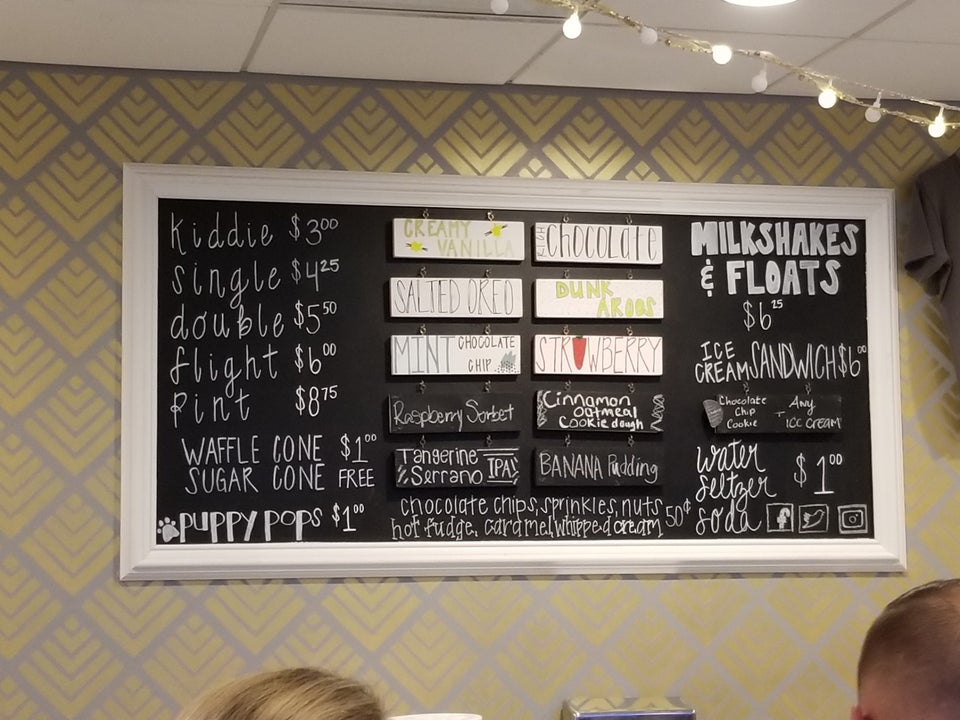 kiddie $3.00
single $4.25
double $5.50
flight $6.00
pint $8.75
WAFFLE CONE $1.00
SUGAR CONE FREE
PUPPY POPS $1.00
CREAMY
VANILLA
RICH chocolate
SALTED OREO
DUNK
AROOS
MINT CHOCOLATE
CHIP
STRAWBERRY
Raspberry Sorbet
Cinnamon
Oatmeal
Cookie dough
Tangerine
Serrano IPA!
BANANA Pudding
chocolate chips, sprinkles, nuts
hot fudge, caramel, whipped cream 50¢
MILKSHAKES
& FLOATS
$6.25
ICE
CREAM SANDWICH $6.00
Chocolate
Chip
Cookie
+ Any
ICE CREAM
water
seltzer
soda
$1.00